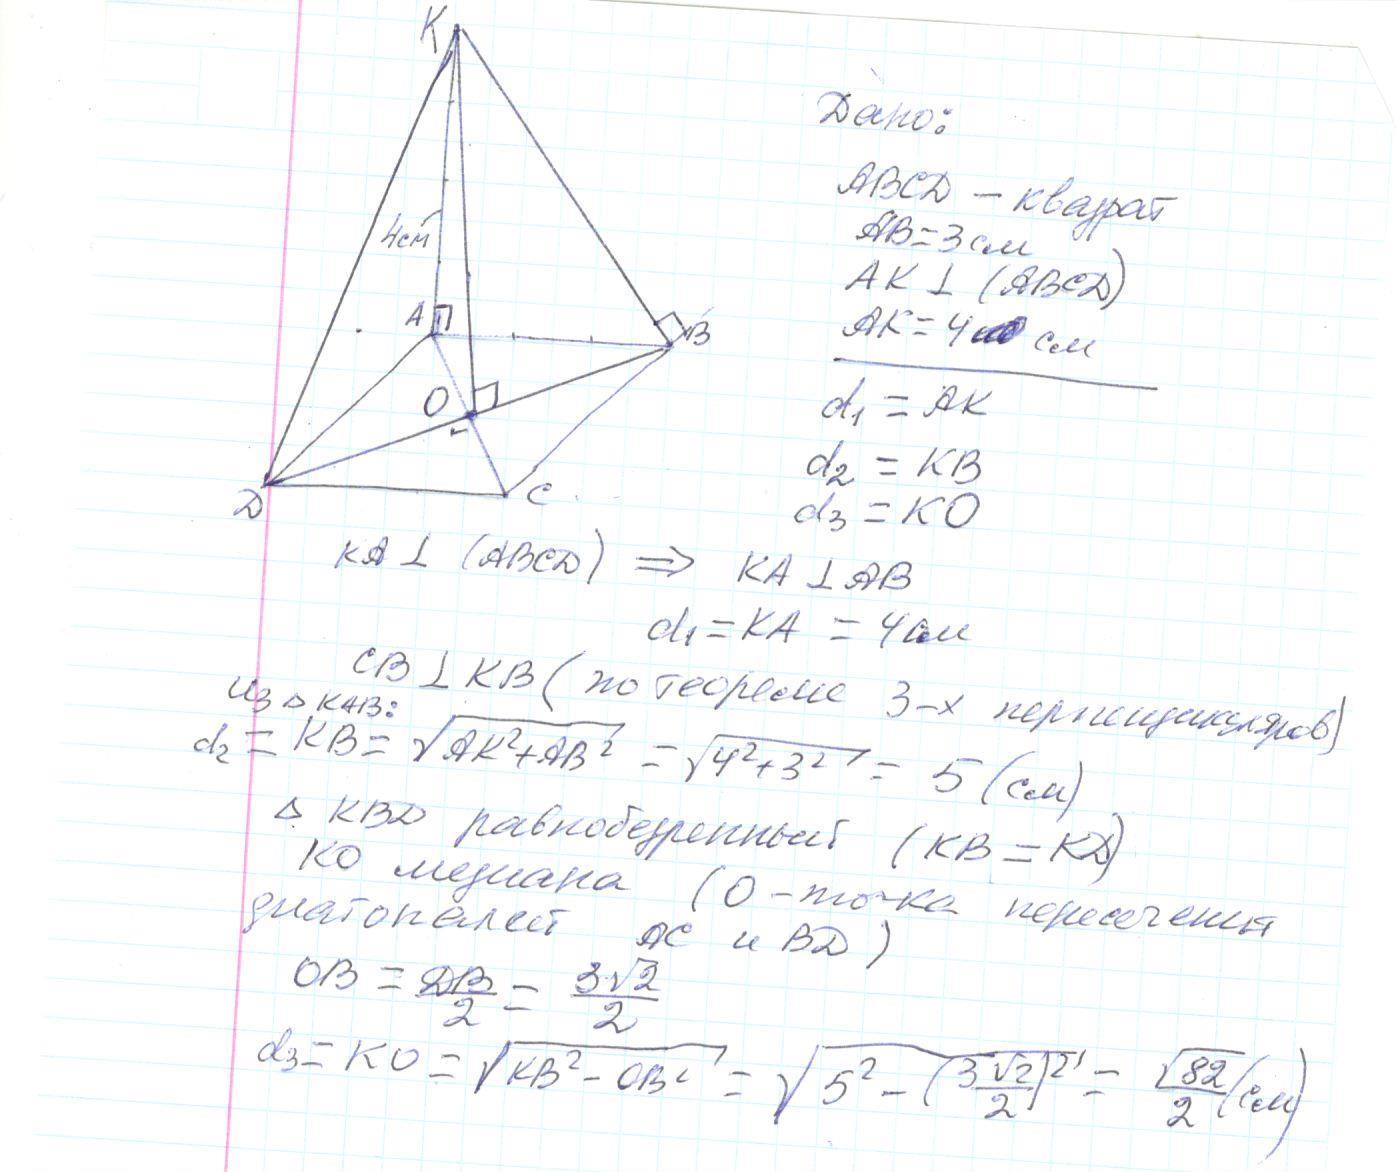 K
Дано:
ABCD – квадрат
AB = 3 см
AK ⊥ (ABCD)
4см
AK = 4 см
A
B
O
d₁ = AK
d₂ = KB
D
C
d₃ = KO
KA ⊥ (ABCD) ⇒ KA ⊥ AB
d₁ = KA = 4 см
CB ⊥ KB (по теореме 3-х перпендикуляров)
Из △ KAB:
d₂ = KB = √(AK² + AB²) = √(4² + 3²) = 5 (см)
△ KBD равнобедренный (KB = KD)
KO медиана (O – точка пересечения
диагоналей AC и BD)
OB = DB/2 = 3√2/2
d₃ = KO = √(KB² – OB²) = √(5² – (3√2/2)²) = √82/2 (см)